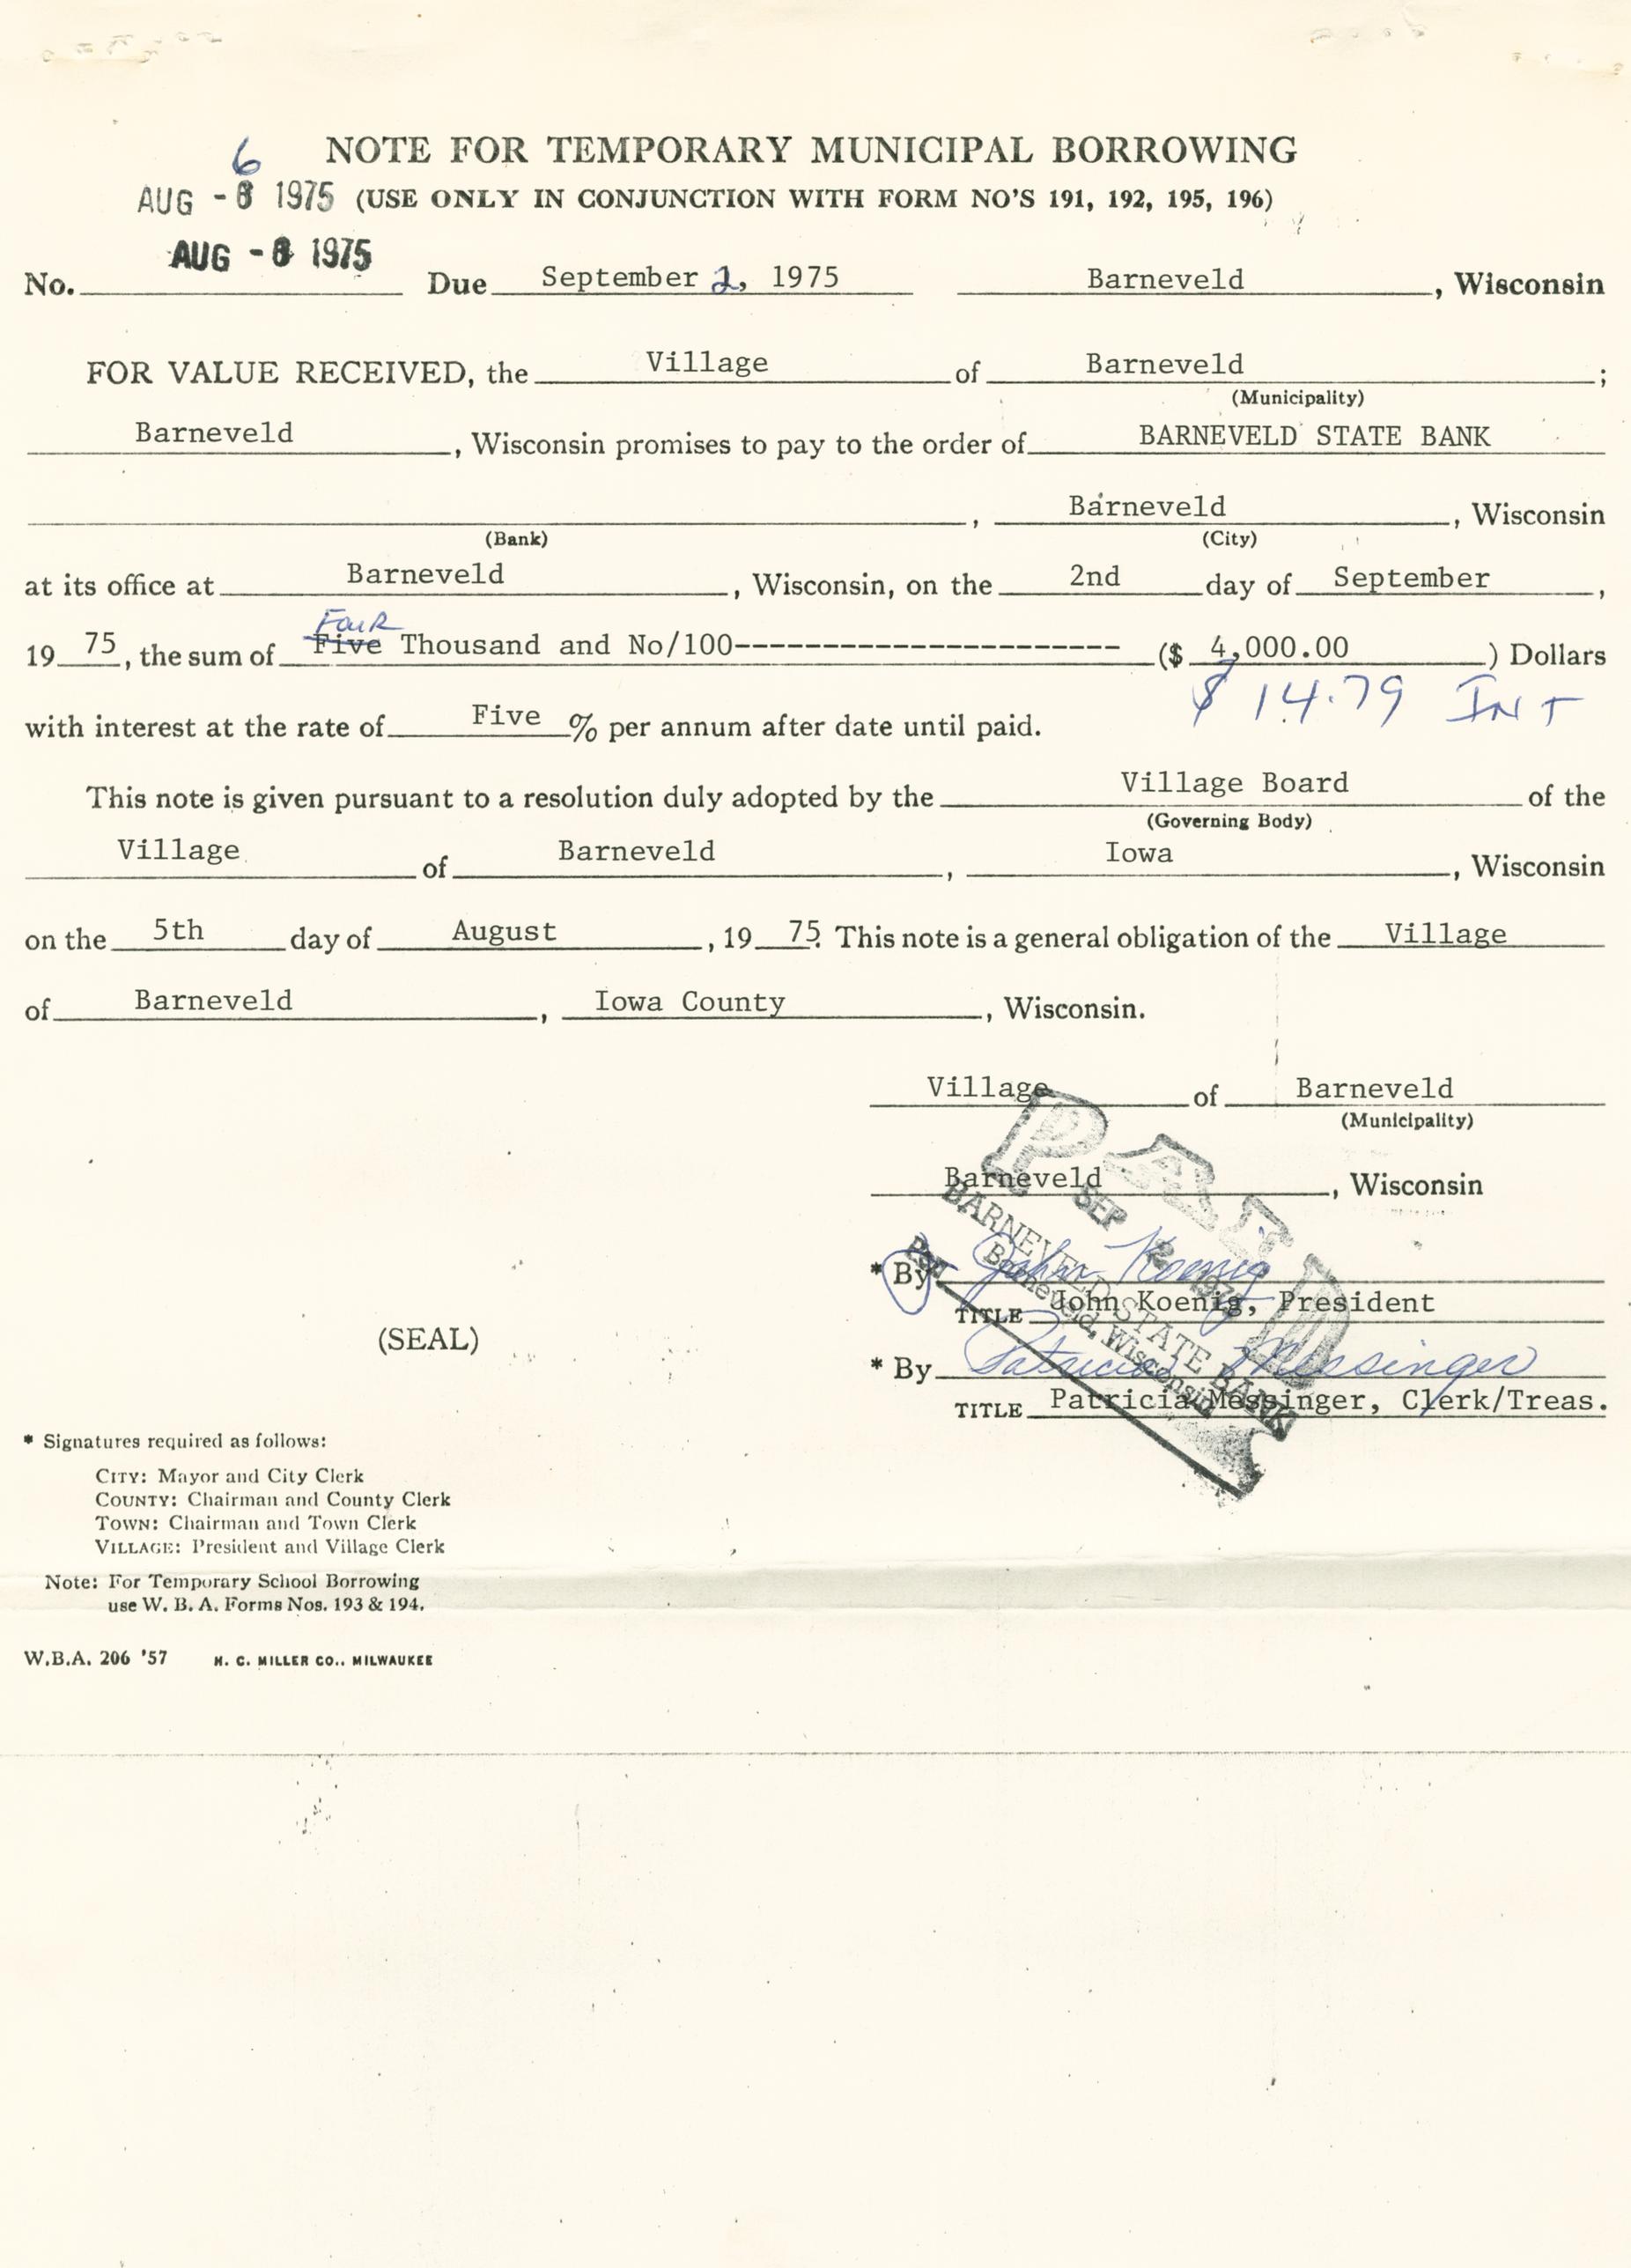 6
NOTE FOR TEMPORARY MUNICIPAL BORROWING
AUG - 8 1975 (USE ONLY IN CONJUNCTION WITH FORM NO'S 191, 192, 195, 196)
AUG - 8 1975
No. Due September 2, 1975 Barneveld, Wisconsin
FOR VALUE RECEIVED, the Village of Barneveld;
(Municipality)
Barneveld, Wisconsin promises to pay to the order of BARNEVELD STATE BANK
, Barneveld, Wisconsin
(Bank) (City)
at its office at Barneveld, Wisconsin, on the 2nd day of September,
FouR
1975, the sum of Five Thousand and No/100---------------------- ($ 4,000.00) Dollars
$ 14.79 INT
with interest at the rate of Five % per annum after date until paid.
This note is given pursuant to a resolution duly adopted by the Village Board of the
(Governing Body)
Village of Barneveld, Iowa, Wisconsin
on the 5th day of August, 1975. This note is a general obligation of the Village
of Barneveld, Iowa County, Wisconsin.
Village of Barneveld
(Municipality)
Barneveld, Wisconsin
PAID
SEP 2 1975
BARNEVELD STATE BANK
Barneveld, Wisconsin
* By John Koenig
TITLE John Koenig, President
(SEAL)
* By Patricia Messinger
TITLE Patricia Messinger, Clerk/Treas.
* Signatures required as follows:
CITY: Mayor and City Clerk
COUNTY: Chairman and County Clerk
TOWN: Chairman and Town Clerk
VILLAGE: President and Village Clerk
Note: For Temporary School Borrowing
use W. B. A. Forms Nos. 193 & 194.
W.B.A. 206 '57 H. C. MILLER CO., MILWAUKEE